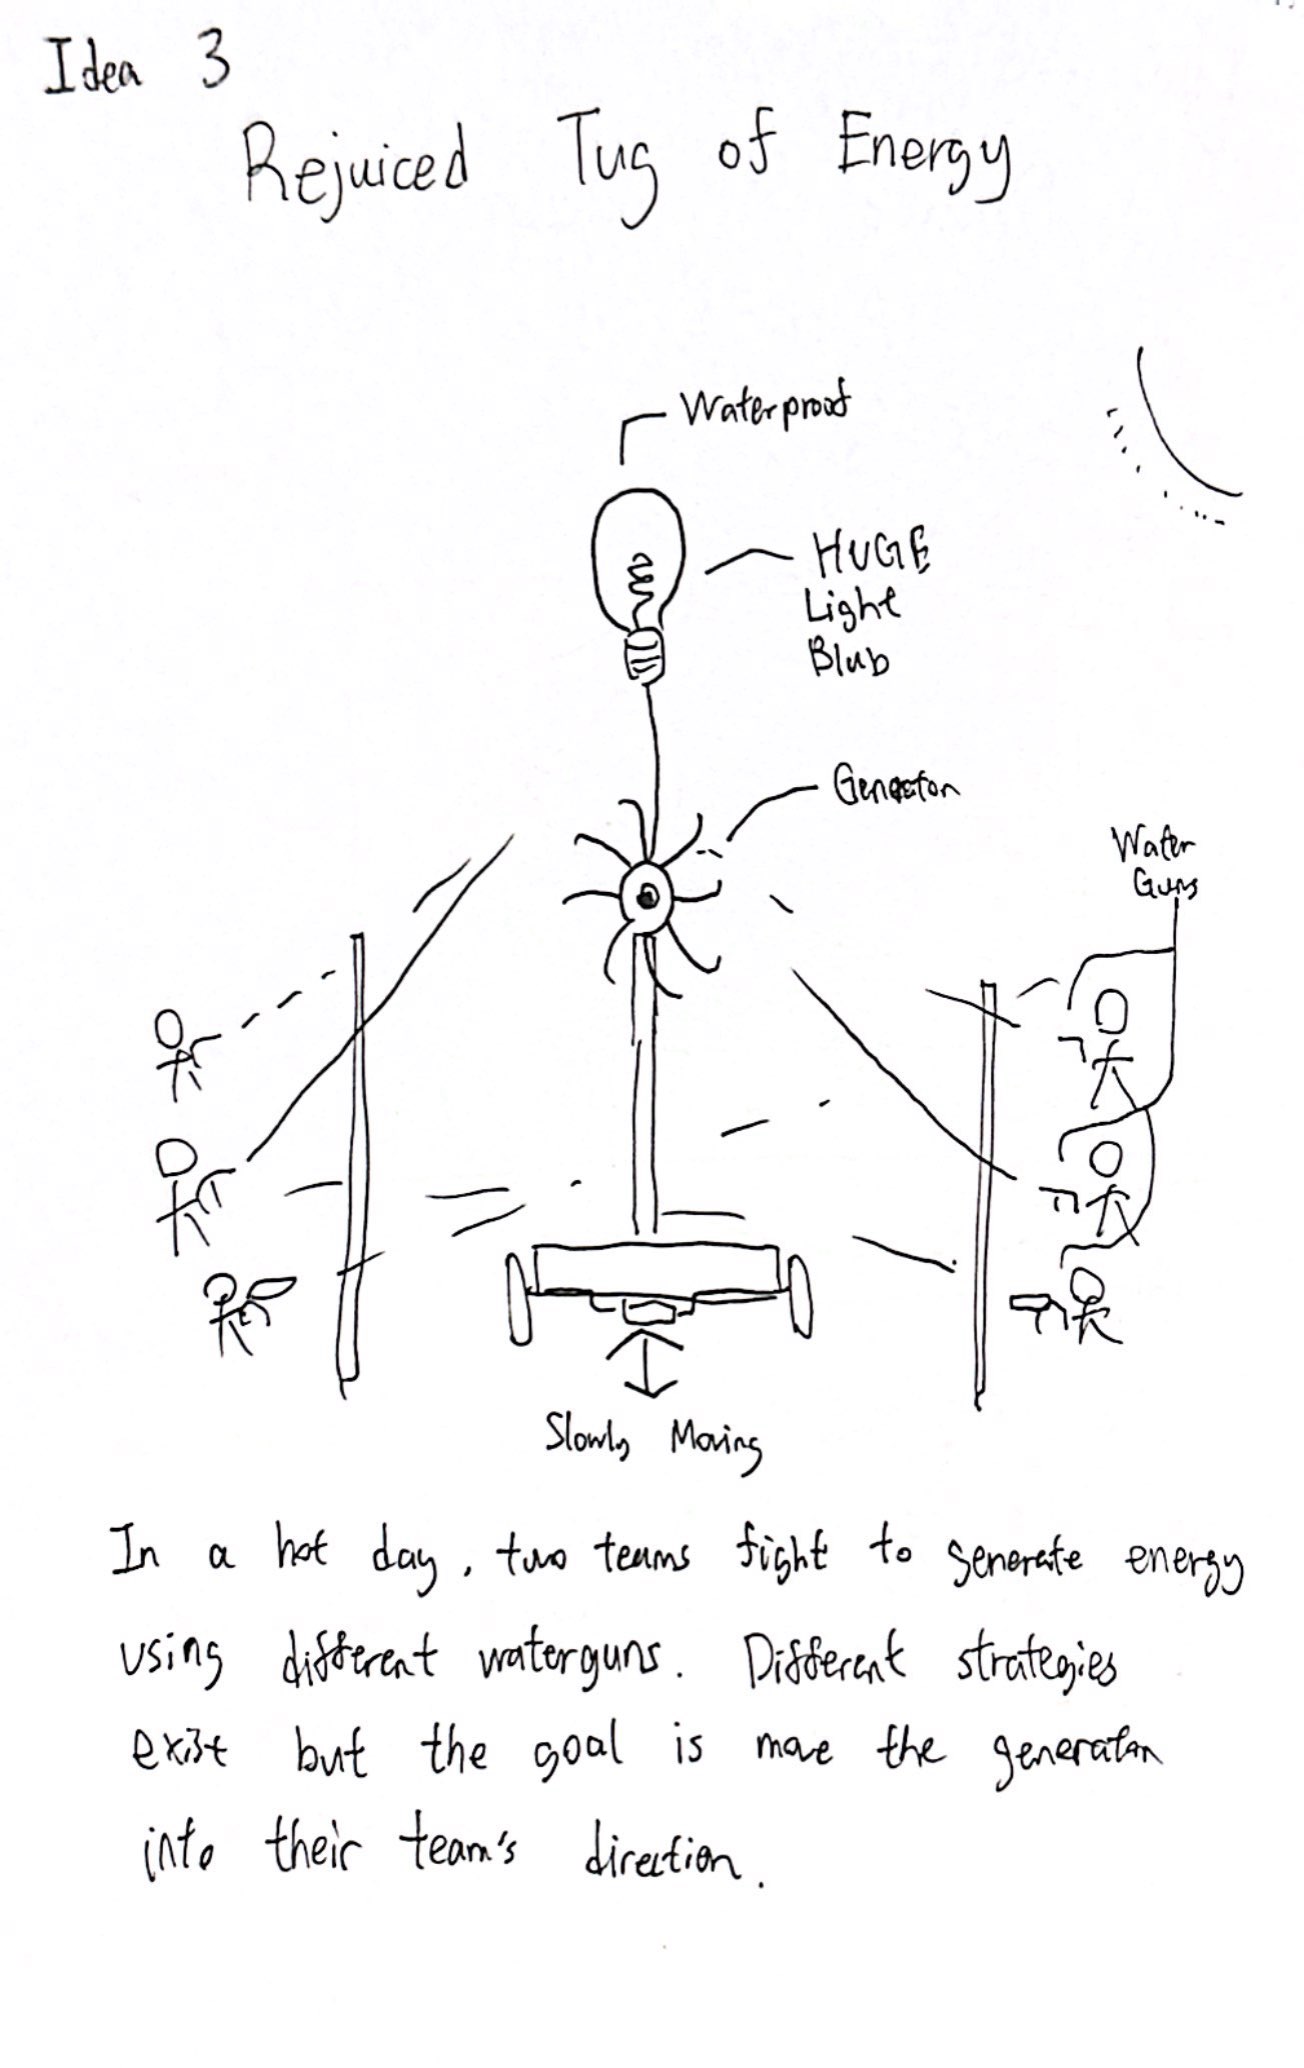 Idea 3
Rejuiced Tug of Energy
Waterproof
HUGE
Light
Blub
Generator
Water
Guns
Slowly Moving
In a hot day, two teams fight to generate energy
using different waterguns. Different strategies
exist but the goal is move the generator
into their team's direction.